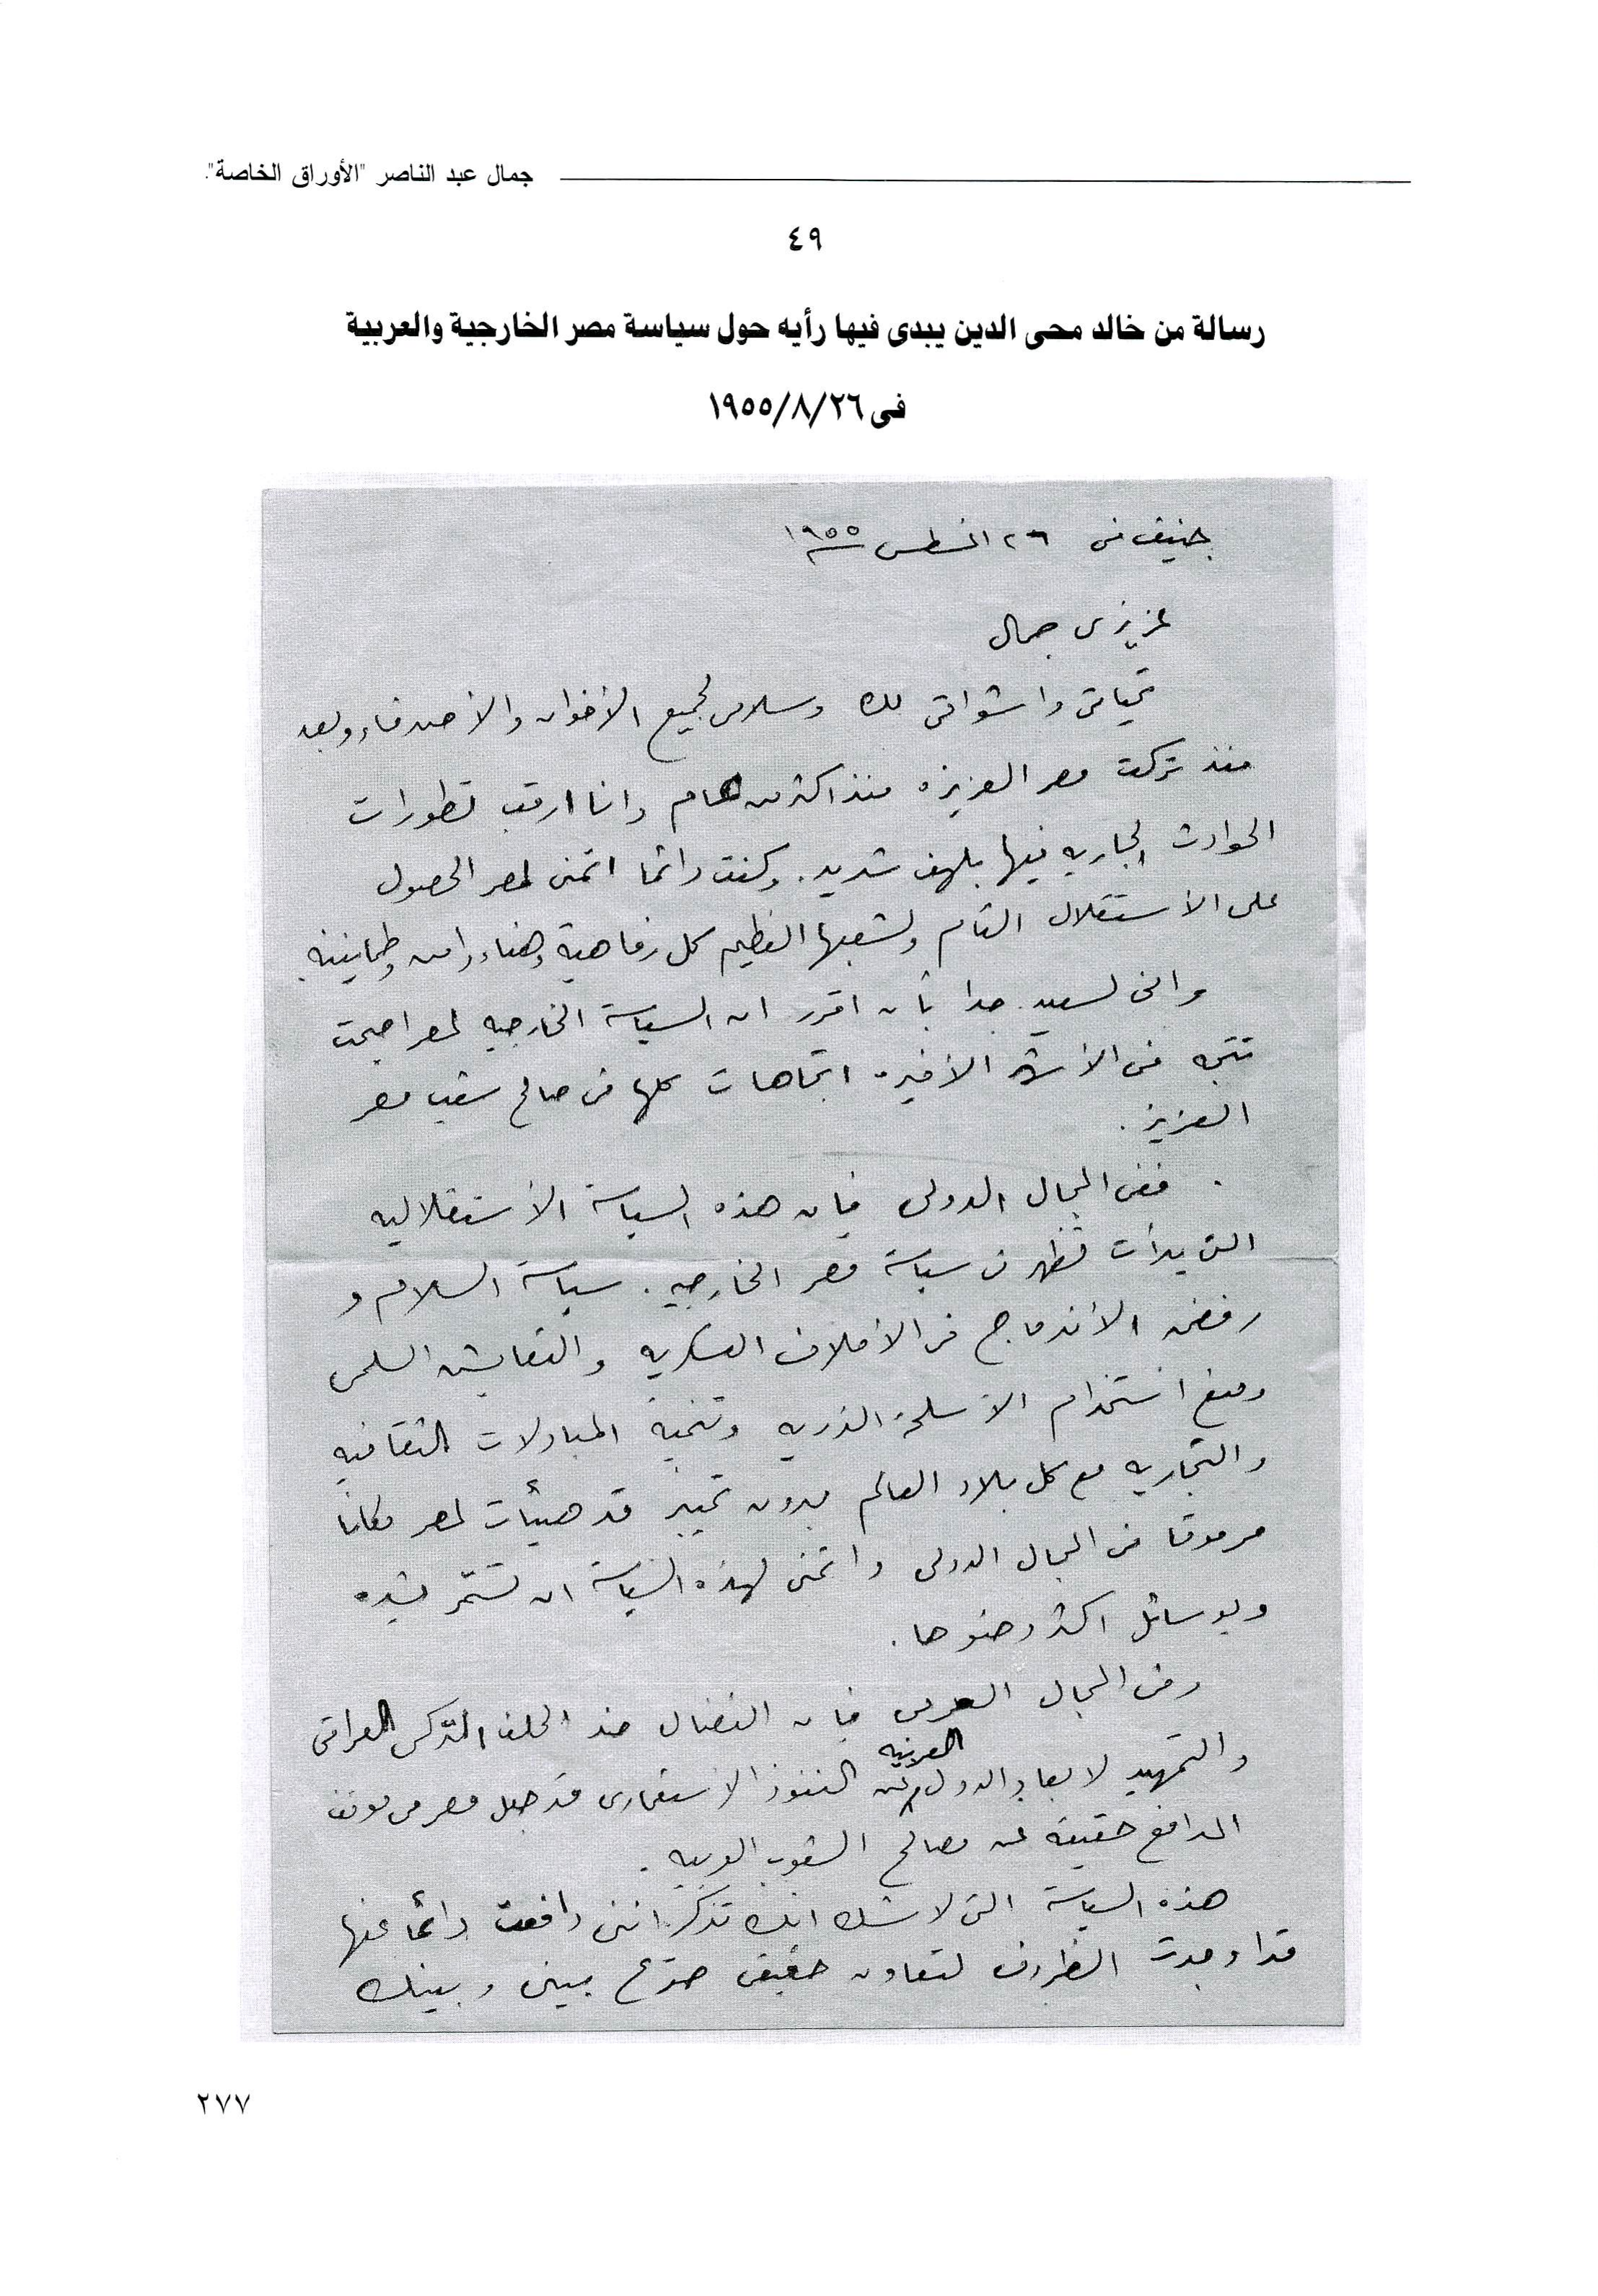 جمال عبد الناصر "الأوراق الخاصة".
٤٩
رسالة من خالد محى الدين يبدى فيها رأيه حول سياسة مصر الخارجية والعربية
فى ٢٦/٨/١٩٥٥
جنيف فى ٢٦ اغسطس ١٩٥٥
عزيزى جمال
تحياتى واشواقى لك وسلامى لجميع الأخوان والأصدقاء وبعد
منذ تركت مصر العزيزه منذ اكثر من عام وانا ارقب تطورات
الحوادث الجاريه فيها بلهف شديد. وكنت دائما اتمنى لمصر الحصول
على الأستقلال التام ولشعبها العظيم كل رفاهية وهناء وامن وطمانينه.
وانى لسعيد جدا بأن اقرر ان السياسة الخارجيه لمصر اصبحت
تتجه فى الأشهر الأخيره اتجاهات كلها فى صالح شعب مصر
العزيز.
ففى المجال الدولى فإن هذه السياسة الأستقلاليه
التى بدأت تظهر فى سياسة مصر الخارجيه. سياسة السلام و
رفض الأندماج فى الأحلاف العسكريه والتعايش السلمى
ومنع استخدام الأسلحة الذريه وتنمية المبادلات الثقافيه
والتجاريه مع كل بلاد العالم بدون تمييز قد هيئات لمصر مكانا
مرموقا فى المجال الدولى واتمنى لهذه السياسة ان تستمر بشده
وبوسائل اكثر وضوحا.
وفى المجال العربى فإن النضال ضد الحلف التركى العراقى
والتمهيد لابعاد الدول العربيه عن النفوذ الأستعمارى قد جعل مصر فى موقف
المدافع حقيقة عن مصالح الشعوب العربيه.
هذه السياسة التى لاشك انك تذكر اننى دافعت دائما عنها
قد اوجدت الظروف لتعاون حقيقى صريح بينى وبينك
٢٧٧